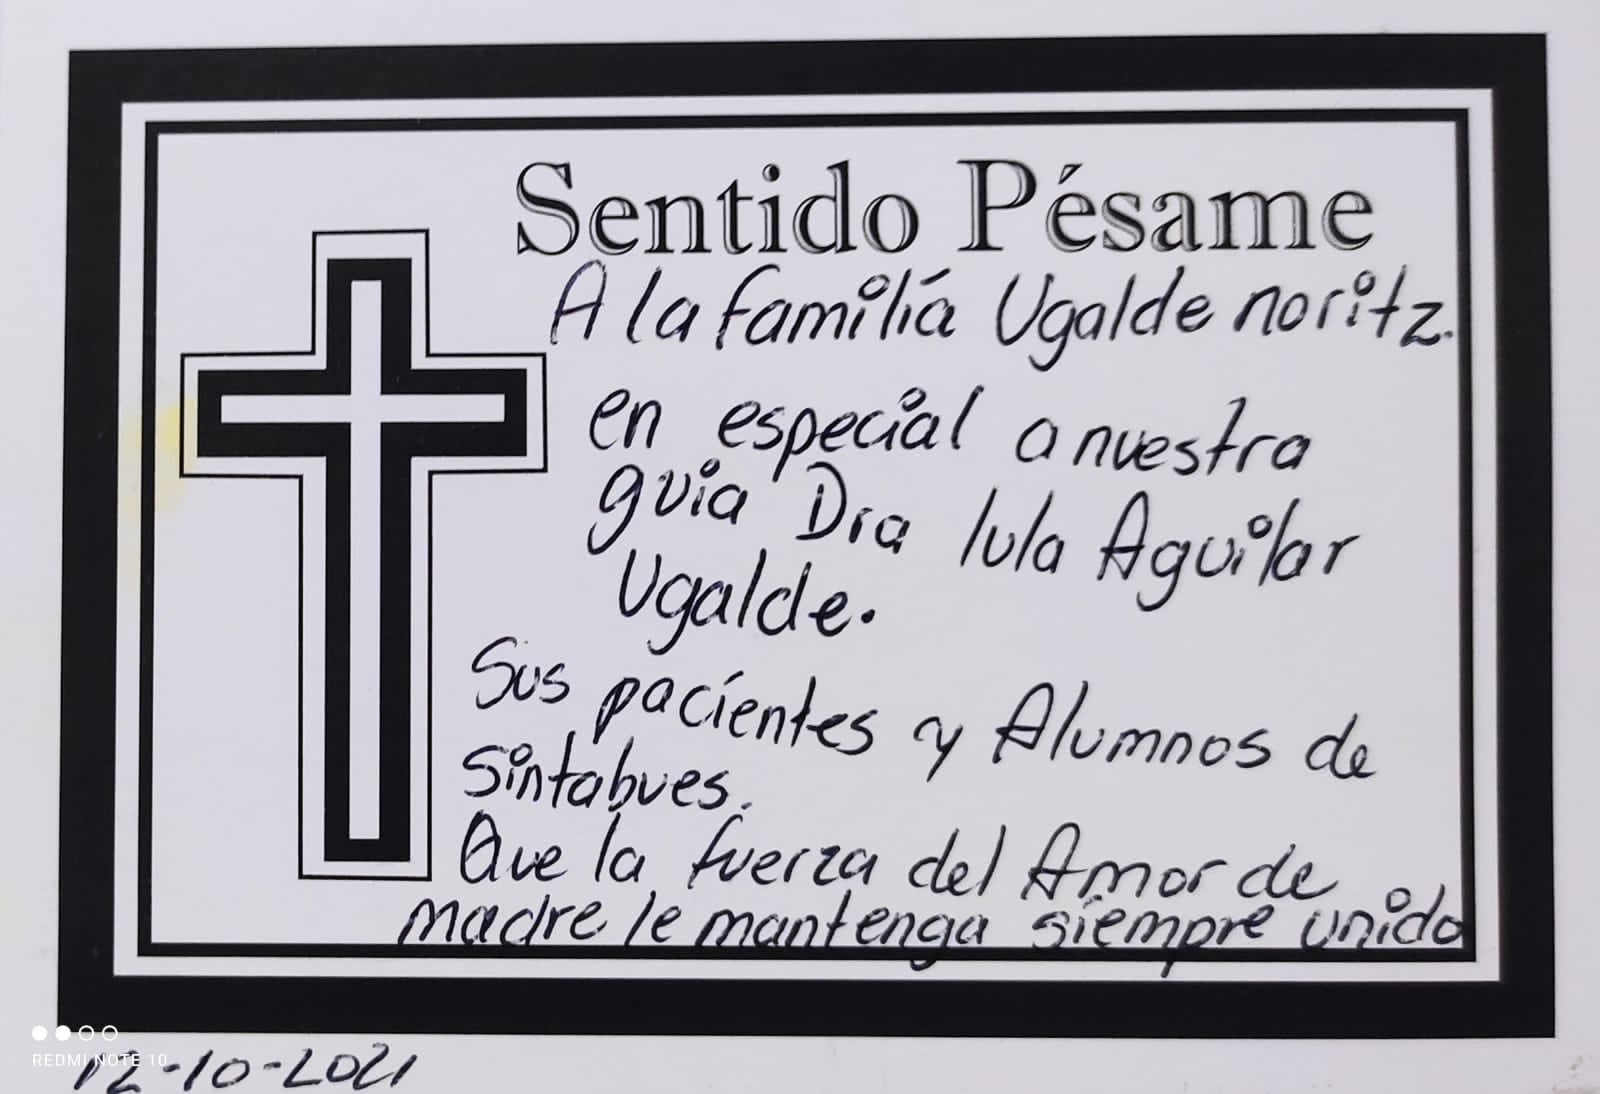 Sentido Pésame
A la familia Ugalde noritz.
en especial a nuestra
guia Dra lula Aguilar
Ugalde.
Sus pacientes y Alumnos de
Sintabues.
Que la fuerza del Amor de
madre le mantenga siempre unido
REDMI NOTE 10
12-10-2021